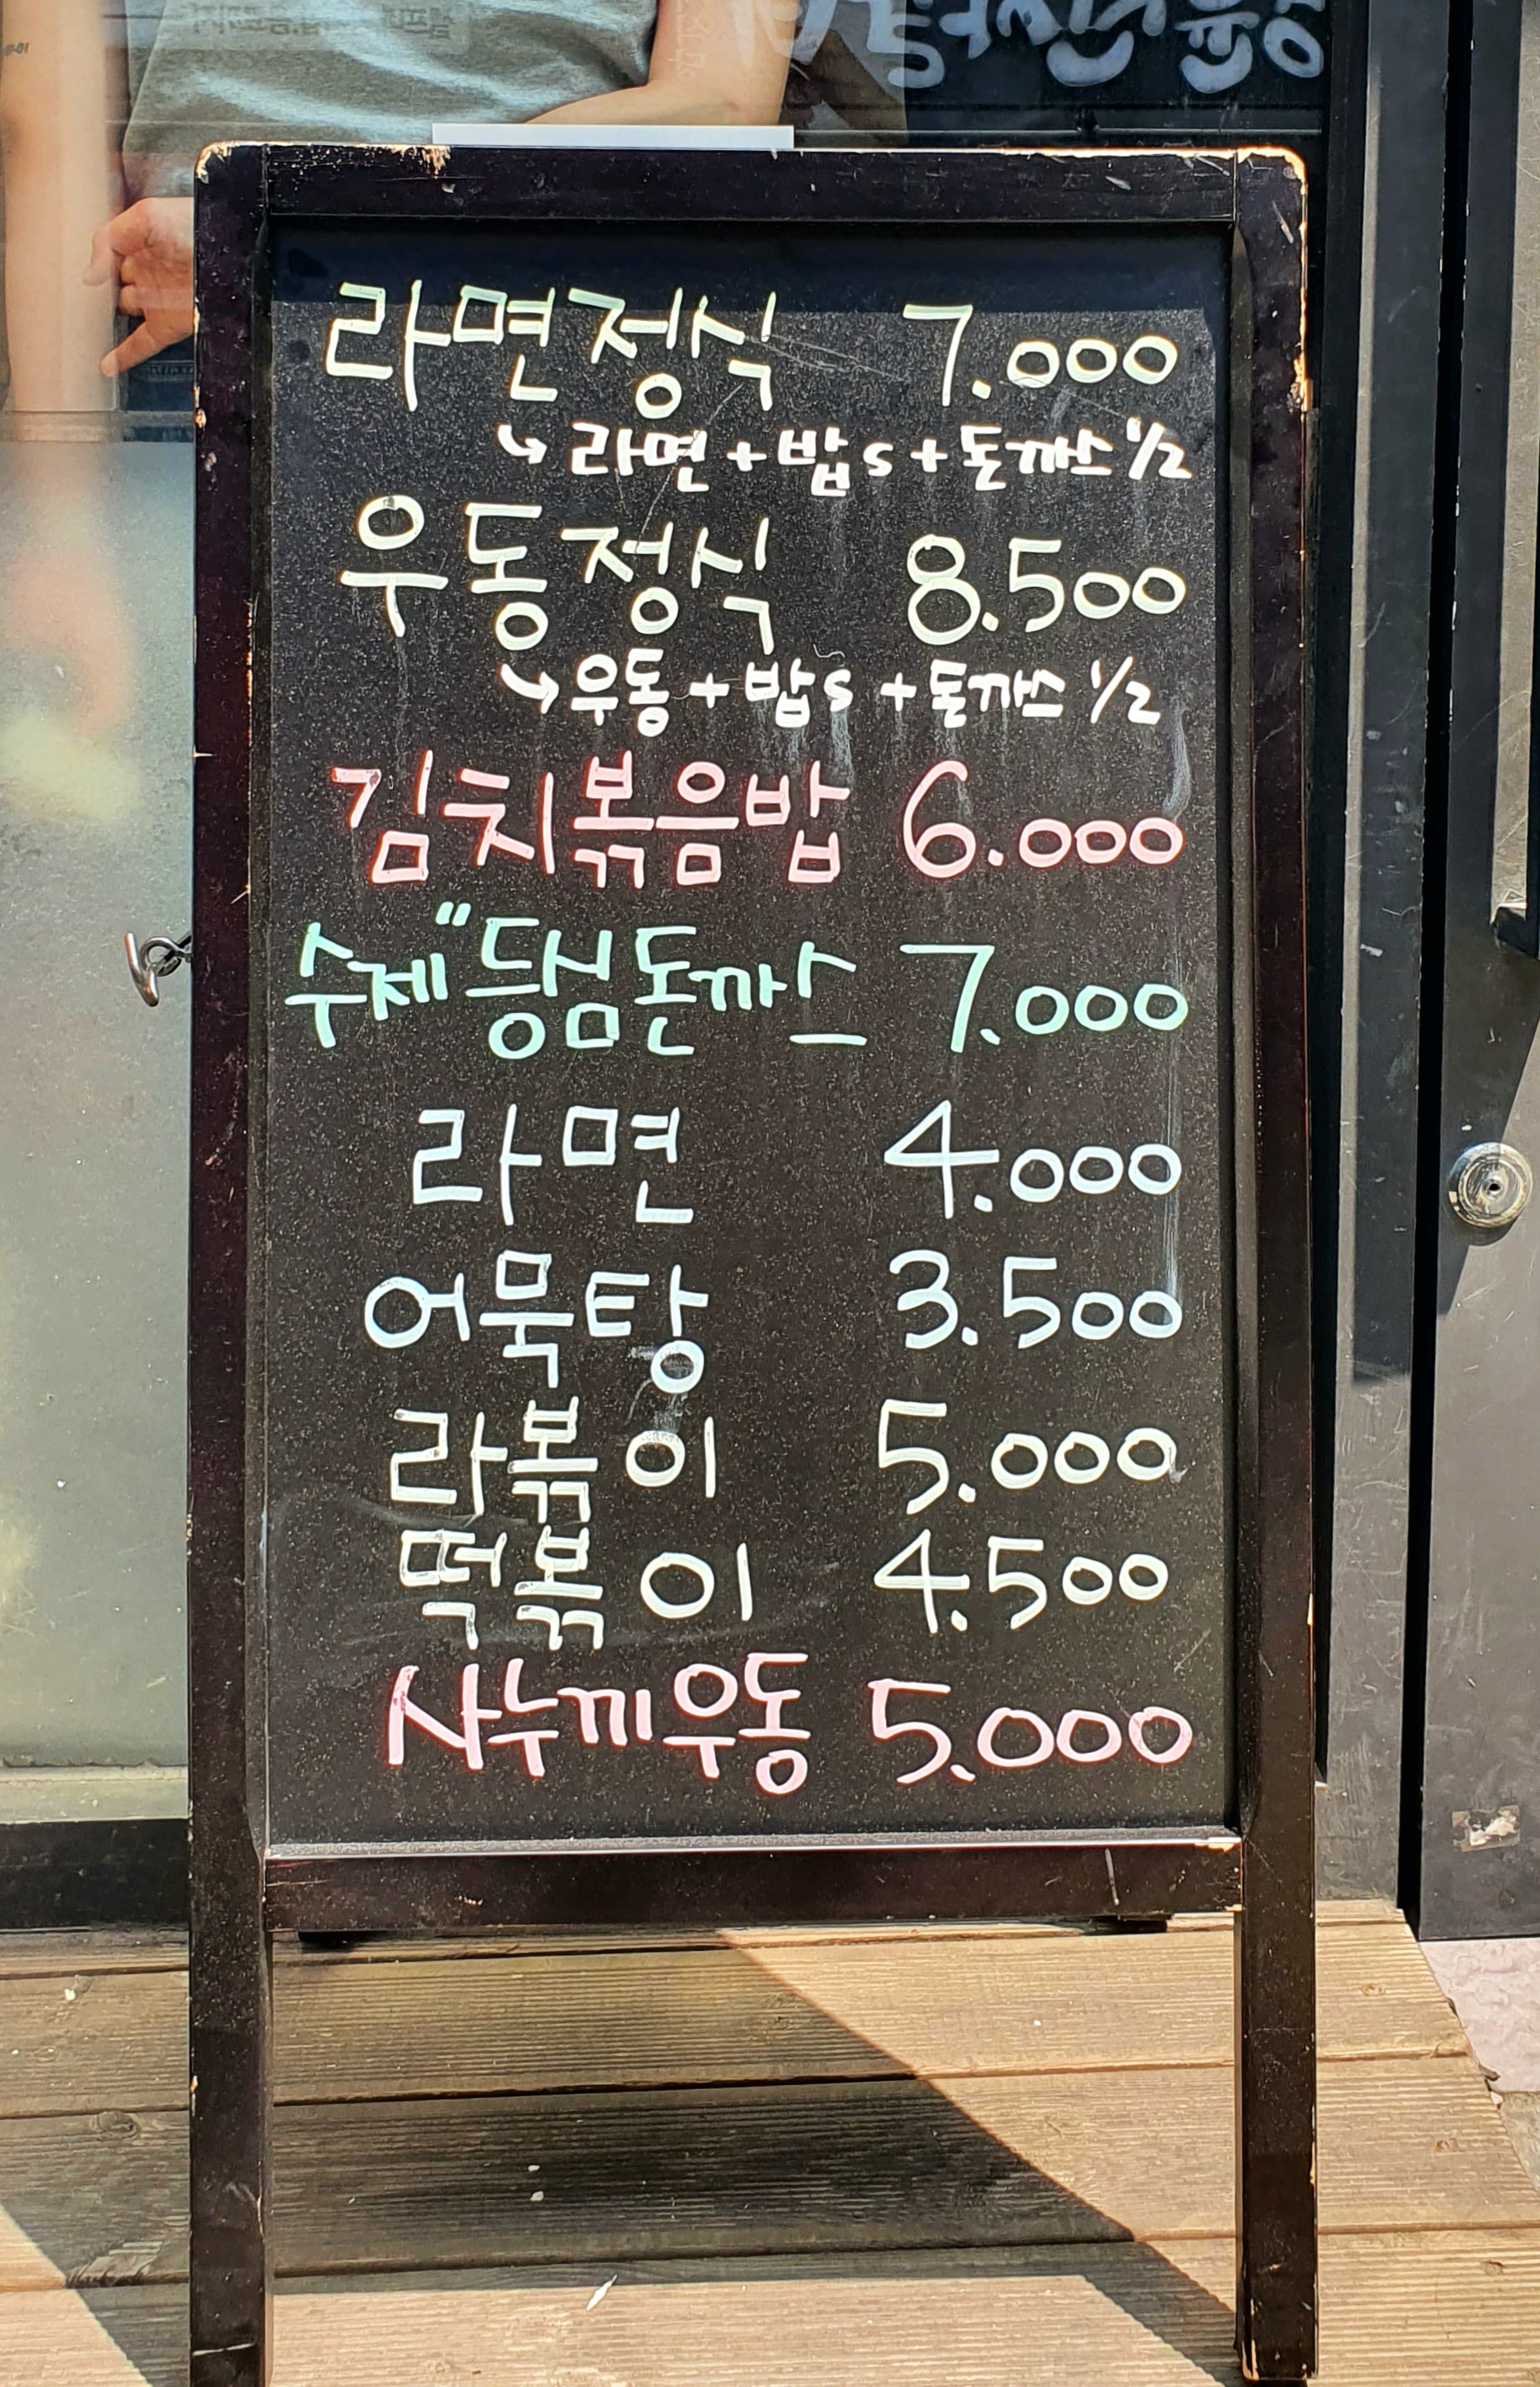 라면정식 7.000
↳ 라면 + 밥 s + 돈까스 1/2
우동정식 8.500
↳ 우동 + 밥 s + 돈까스 1/2
김치볶음밥 6.000
수제"등심돈까스 7.000
라면 4.000
어묵탕 3.500
라볶이 5.000
떡볶이 4.500
사누끼우동 5.000